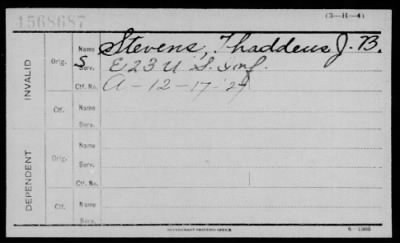 1568687 (3-H-4)
INVALID
Orig. Name Stevens, Thaddeus J. B.
S Serv. E 23 U. S. Inf.
Ctf. No. A-12-17-'27
Ctf. Name
Serv.
DEPENDENT
Orig. Name
Serv.
Ctf. No.
Ctf. Name
Serv.
GOVERNMENT PRINTING OFFICE